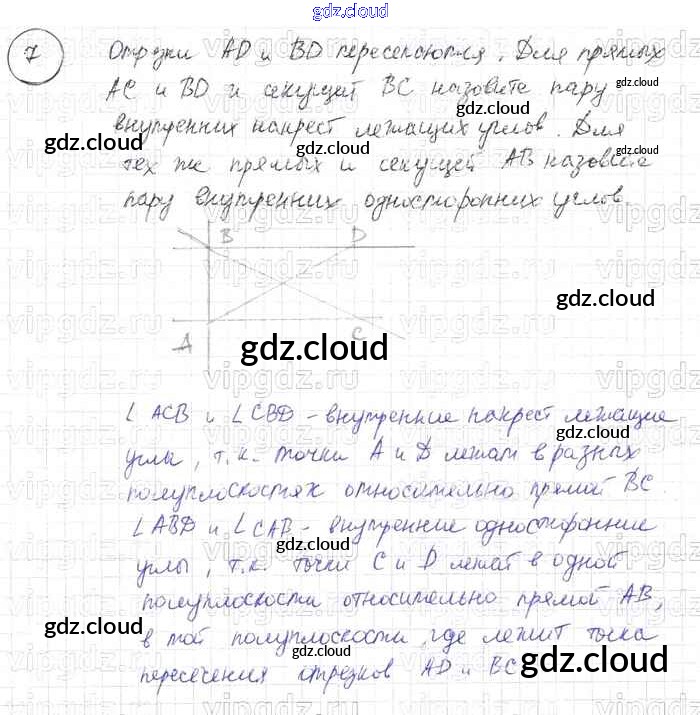 gdz.cloud
7
Отрезки AD и BD пересекаются. Для прямых
AC и BD и секущей BC назовите пару
gdz.cloud
gdz.cloud
внутренних накрест лежащих углов. Для
тех же прямых и секущей AB назовите
gdz.cloud
gdz.cloud
пару внутренних односторонних углов.
B D
gdz.cloud
A C
gdz.cloud
∠ ACB и ∠ CBD - внутренние накрест лежащие
gdz.cloud
углы, т.к. точки A и D лежат в разных
полуплоскостях относительно прямой BC.
∠ ABD и ∠ CAB - внутренние односторонние
gdz.cloud
углы, т.к. точки C и D лежат в одной
полуплоскости относительно прямой AB,
gdz.cloud
в той полуплоскости, где лежит точка
пересечения отрезков AD и BC
gdz.cloud